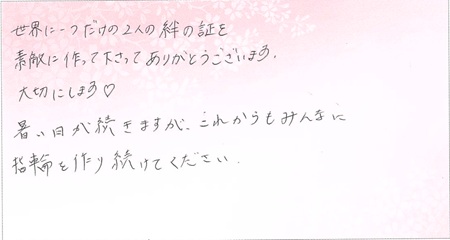 世界に一つだけの2人の絆の証を
素敵に作って下さってありがとうございます.
大切にします♡
暑い日が続きますが、これからもみんなに
指輪を作り続けてください.